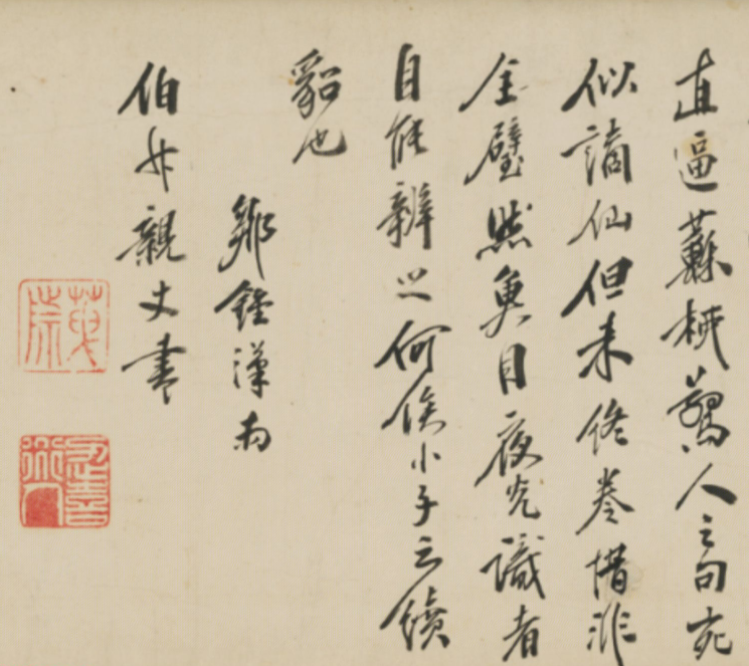 直逼蘇㭜驚人之句宛
似謫仙但未終卷惜非
全璧然魚目夜光識者
自能辨之何俟小子之續
貂也
鄒鍾漢南
伯女親丈書